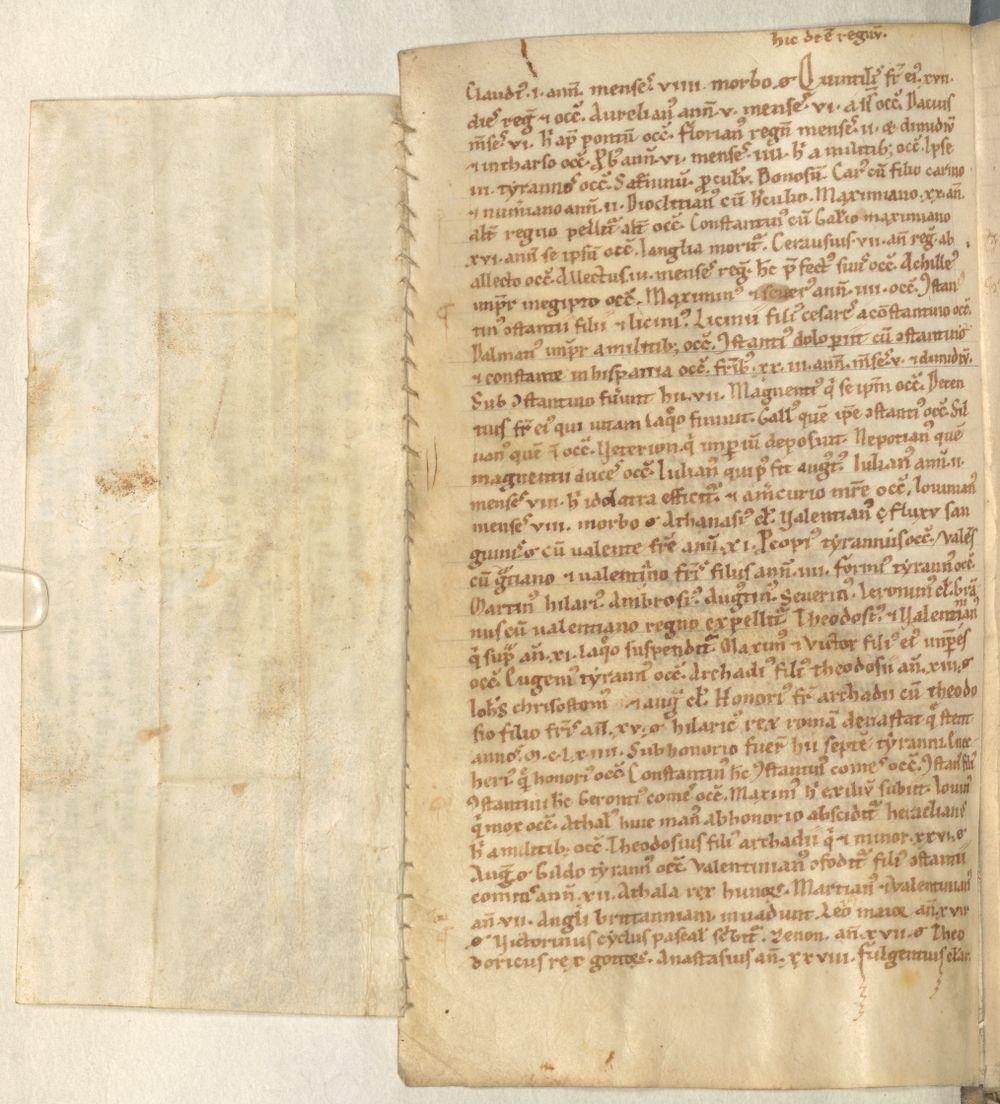 hic deē regnū.
Claudī. i. anñ. menseˢ viii. morbo. σ Quintiliˢ fr̄ eiˀ. xvii.
dieˢ reg̅ ⁊ occ̄. Aurelianˀ anñ. v. menseˢ vi. a occ̄. Dacius
m̄seˢ vi. h̄ ap̄ pontū occ̄. florianˀ regñ menseˢ ii. & dimidiū
⁊ in tharso occ̄. annˀ. vi. menseˢ iiii. h̄ a militib; occ̄. Ipse
iii. tyrannoˢ occ̄. Saturninū. pculū. Bonosū. Carˀ cū filio carino
⁊ numiano annˀ. ii. Dioclitianˀ cū h̄culio. Maximiano. xx. añ.
alt̄ regno pellit̄ alt̄ occ̄. Constantinˀ cū Galiio maximiano
xvi. anñ se ipsū occ̄. I anglia morit̄. Cerausius. vii. añ reg̅. ab
allecto occ̄. Allectus. iii. menseˢ reg̅. h̄c p̄fectˀ suiˀ occ̄. Achilleˢ
imp̄r in egipto occ̄. Maximinˀ ⁊ severˀ annˀ. iiii. occ̄. Ɔstan
tinˀ ɔstantii filii ⁊ liciniˀ. Licinii filiˀ cesareˢ a cōstantino occ̄.
Dalmatiˀ imp̄r a militib; occ̄. Ɔstantiˀ dolo piit cū ɔstantino
⁊ constante in hispania occ̄. fr̄ib; xx. iii. anñ. m̄seˢ. v. ⁊ dimidiū.
Sub ɔstantino fuert hii. vii. Magnentiˀ q̄ se ipm̄ occ̄. Decen
tius fr̄ eiˀ qui uitam laq̊o finiuit. Gallˀ quē ip̄e ɔstantiˀ occ̄. Sil
uanˀ quē ī occ̄. Veterion. q̄ imp̄iū deposuit. Nepotianˀ quē
magnentii duceˢ occ̄. Iulianˀ qui p̄ fit augtˀ. Iulianˀ annˀ. ii.
menseˢ viii. h̄ idolatra efficit̄. ⁊ a mcurio m̄re occ̄. Iouinianˀ
menseˢ viii. morbo σ Athanasiˀ cl̄. Valentianˀ ę fluxu san
guiniˢ σ cū valente fr̄e annˀ. xi. Pcopiˀ tyrannus occ̄. Valēs
cū gtiano ⁊ ualentino fr̄iˢ filius annˀ. iiii. Formiˀ tyrannˀ occ̄.
Martinˀ hilariˀ Ambrosiˀ Augtinˀ. Severinˀ. Ieronimˀ cl̄. Gra
nus cū valentiano regno expellit̄. Theodosiˀ. ⁊ Valentinianˀ
q̄ sup̄ añ. xi. laq̊o suspendit̄. Maximˀ ⁊ victor filiˀ eiˀ imp̄es
occ̄. Eugeniˀ tyrannˀ occ̄. Archadiˀ filiˀ theodosii añ. xiii. σ
Ioh̄s chrisostomˀ ⁊ aug̅ cl̄. Honoriˀ fr̄ archadii cū theodo
sio filio fr̄iˢ añ. xv. σ hilaricˀ rex romā deuastat q̄ stetit
annoˢ. M. c. lxiiii. Sub honorio fuer̄ hii septē tyranni.
heriˀ q̄ honoriˀ occ̄. Constantinˀ h̄c Ɔstantinˀ comeˢ occ̄. Ɔstanˀ filiˀ
ɔstantini h̄c Gerontiˀ comeˢ occ̄. Maximˀ h̄ exiliū subiit. Iouinˀ
q̄ mox occ̄. Athalˀ huic manˀ ab honorio abscidit̄ heraclianˀ
h̄ a militib; occ̄. Theodosius filiˀ archadii q̄ ⁊ minor. xxvi. σ
Aug̅ σ Gildo tyrannˀ occ̄ Valentinianˀ ɔfodit̄ filiˀ ɔstantii
comitiˢ annˀ. xii. Athala rex hunoꝝ. Martianˀ ⁊ Valentinianˀ
añ. vii. Angli brittanniam inuadunt. Leo maior añ. xvii
σ Victorinus cyclus pascalˢ sc̄bit̄. Zenon. añ. xvii. σ Theo
doricus rex gottoꝝ. Anastasius añ. xxviii. fulgentius